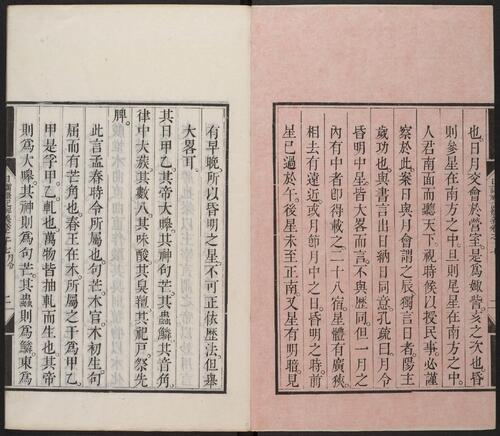 也日月交會於營室是爲娵訾亥之次也昏
則參星在南方之中旦則尾星在南方之中
人君南面而聽天下視時候以授民事必謹
察於此案日與月會謂之辰獨言日者陽主
歲功也與書言出日納日同意孔疏曰月令
昏明中星皆大畧而言不與曆同但一月之
內有中者即得載之二十八宿星體有廣狹
相去有遠近或月節月中之日昏明之時前
星已過於午後星未至正南又星有明暗見
有早晚所以昏明之星不可正依歷法但舉
大畧耳
其日甲乙其帝大皞其神句芒其蟲鱗其音角
律中大蔟其數八其味酸其臭羶其祀戸祭先
脾
此言孟春時令所屬也句芒木官木初生句
屈而有芒角也春王在木所屬之干爲甲乙
甲是孚甲乙軋也萬物皆抽軋而生也其帝
則爲大皞其神則爲句芒其蟲則爲鱗東爲